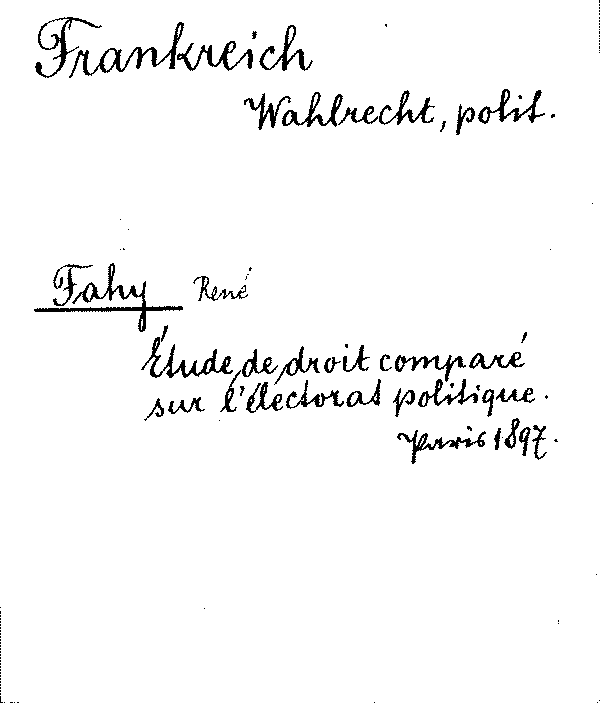 Frankreich
Wahlrecht, polit.
Fahy René
Étude de droit comparé
sur l'électorat politique.
Paris 1897.